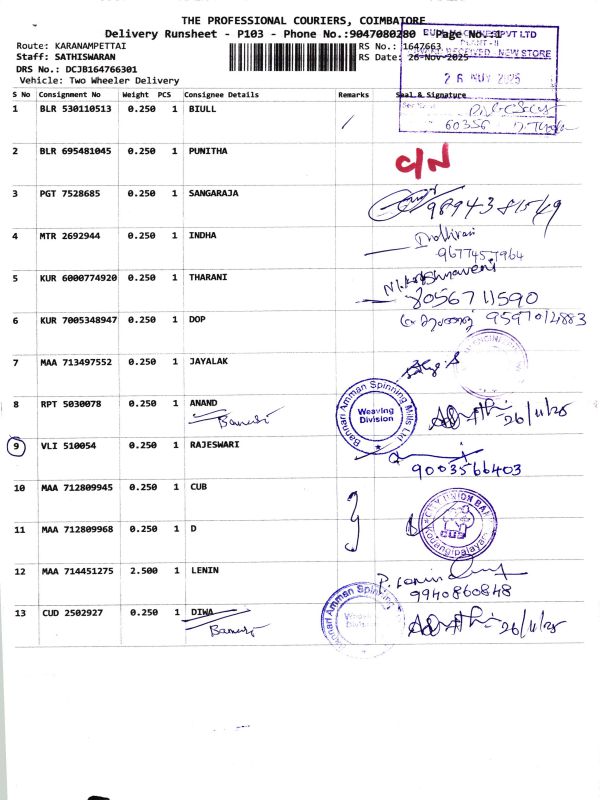 THE PROFESSIONAL COURIERS, COIMBATORE
Delivery Runsheet - P103 - Phone No.:9047080280 - Page No.:1
Route: KARANAMPETTAI RS No.: 1647663
Staff: SATHISWARAN RS Date: 26-Nov-2025
DRS No.: DCJB164766301
Vehicle: Two Wheeler Delivery
PVT LTD
RECEIVED - NEW STORE
26 NOV 2025
S No Consignment No Weight PCS Consignee Details Remarks Seal & Signature
1 BLR 530110513 0.250 1 BIULL
60356
2 BLR 695481045 0.250 1 PUNITHA
C/N
3 PGT 7528685 0.250 1 SANGARAJA
4 MTR 2692944 0.250 1 INDHA
9677457964
5 KUR 6000774920 0.250 1 THARANI
8056711590
6 KUR 7005348947 0.250 1 DOP
7 MAA 713497552 0.250 1 JAYALAK
8 RPT 5030078 0.250 1 ANAND
Bannari Amman Spinning Mills Ltd
Weaving Division
26/11/25
9 VLI 510054 0.250 1 RAJESWARI
9003566403
10 MAA 712809945 0.250 1 CUB
CITY UNION BANK
CUB
11 MAA 712809968 0.250 1 D
12 MAA 714451275 2.500 1 LENIN
9940860848
13 CUD 2502927 0.250 1 DIWA
Bannari Amman Spinning
26/11/25